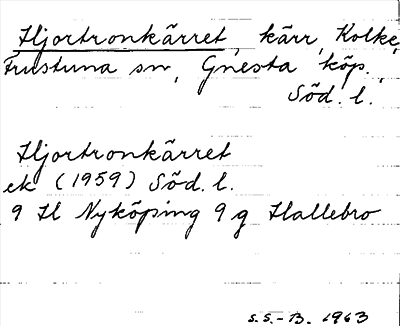 Hjortronkärret, kärr, Kolke,
Frustuna sn, Gnesta köp.,
Söd. l.
Hjortronkärret
ek (1959) Söd. l.
9 H Nyköping 9 g Hallebro
S.S.-B. 1963